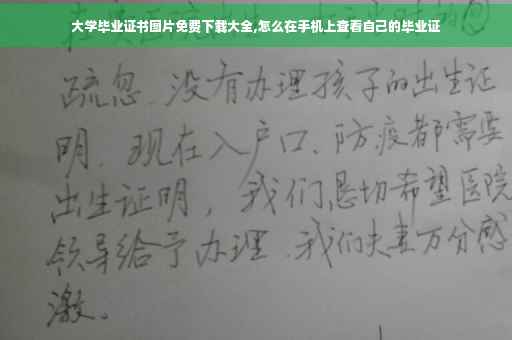 大学毕业证书图片免费下载大全,怎么在手机上查看自己的毕业证
疏忽、没有办理孩子的出生证
明、现在入户口、防疫都需要
出生证明，我们恳切希望医院
领导给予办理、我们夫妻万分感
激。